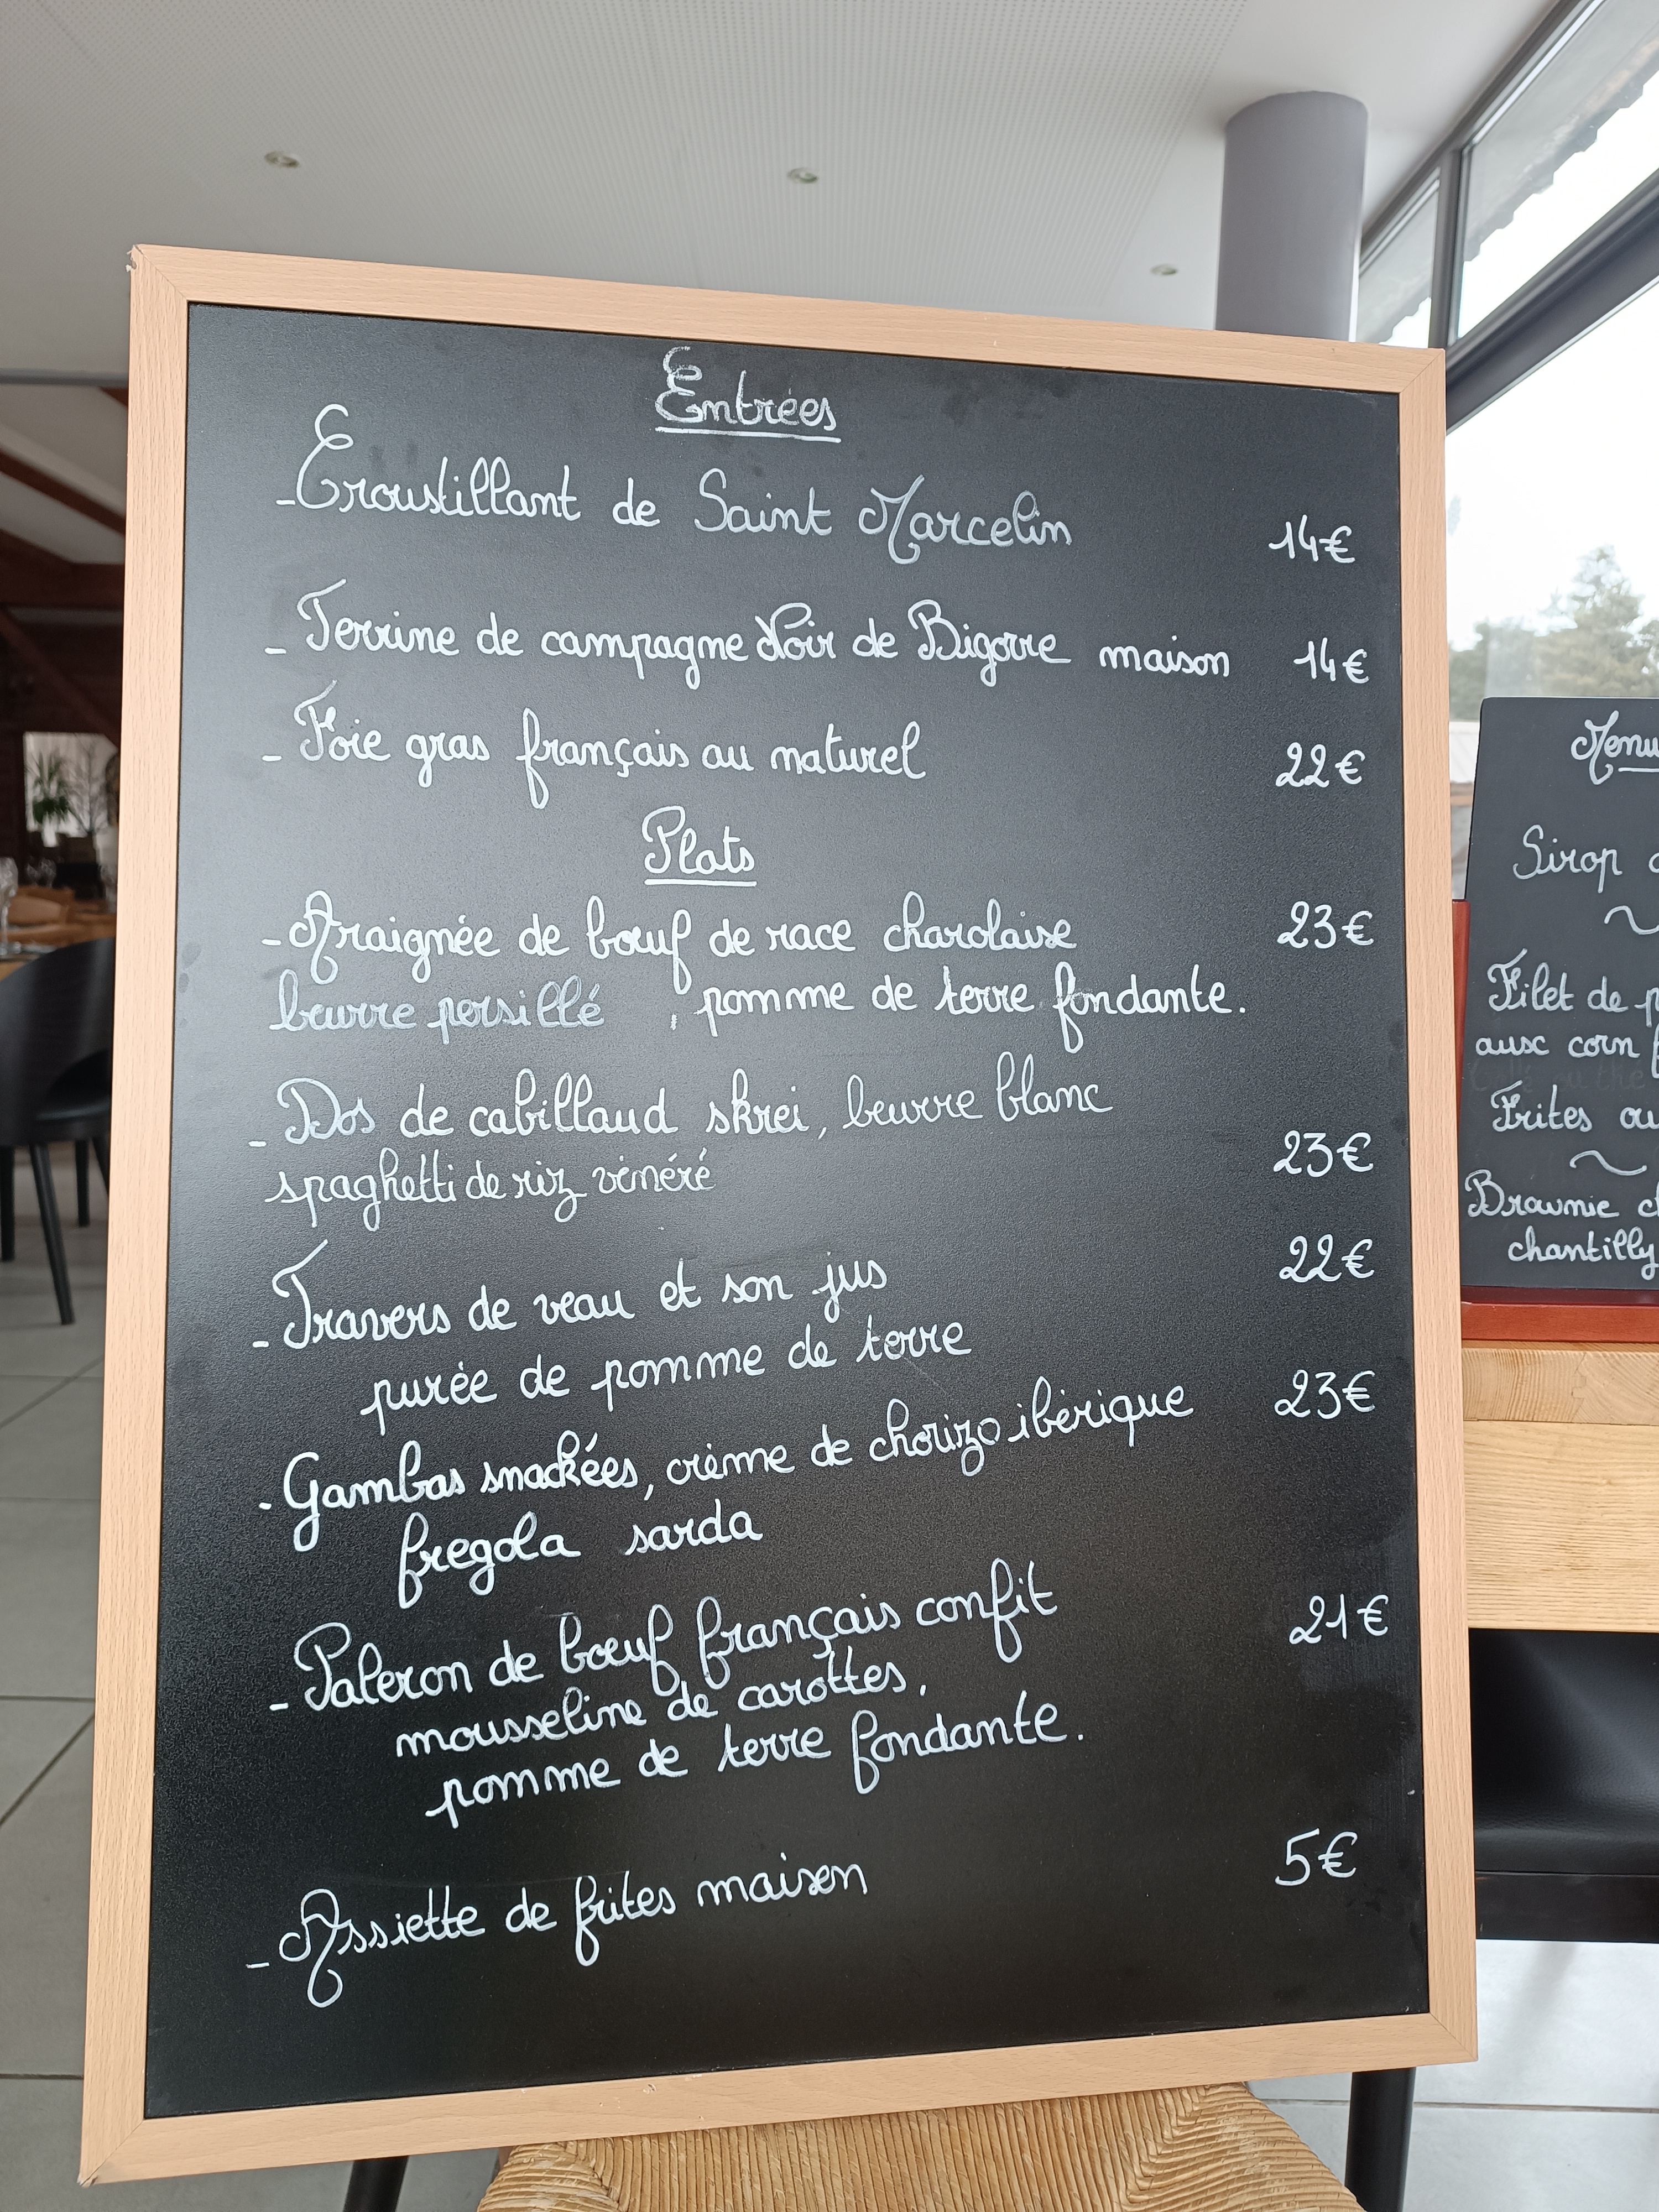 Entrées
- Croustillant de Saint Marcelin 14€
- Terrine de campagne Noir de Bigorre maison 14€
- Foie gras français au naturel 22€
Plats
- Araignée de bœuf de race charolaise 23€
beurre persillé , pomme de terre fondante.
- Dos de cabillaud skrei, beurre blanc
spaghetti de riz vénéré 23€
- Travers de veau et son jus 22€
purée de pomme de terre
- Gambas snackées, crème de chorizo ibérique 23€
fregola sarda
- Paleron de bœuf français confit 21€
mousseline de carottes,
pomme de terre fondante.
- Assiette de frites maison 5€
Menu
Sirop
Filet de
aux corn
Frites ou
Brownie
chantilly